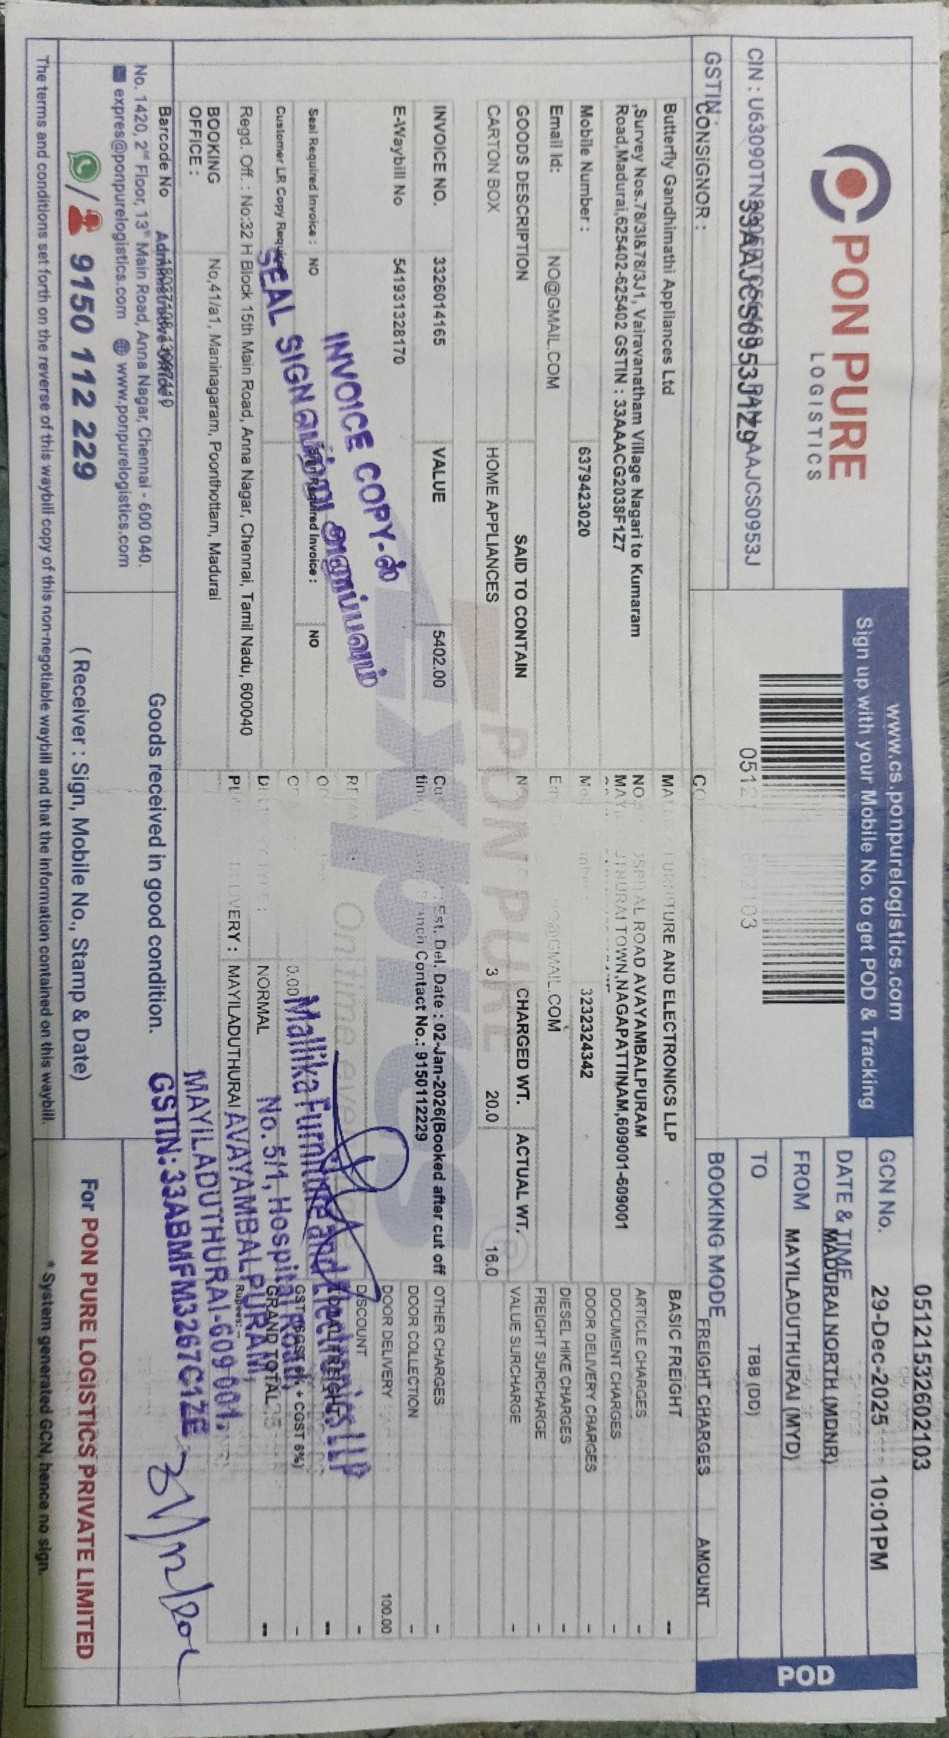 PON PURE
LOGISTICS
CIN : U63090TN
PAN : AAJCS0953J
GSTIN :
33AAJCS0953J1Z9
www.cs.ponpurelogistics.com
Sign up with your Mobile No. to get POD & Tracking
051215532602103
GCN No. 29-Dec-2025 10:01PM
DATE & TIME
FROM MADURAI NORTH (MDNR)
TO MAYILADUTHURAI (MYD)
BOOKING MODE TBB (DD)
POD
CONSIGNOR :
Butterfly Gandhimathi Appliances Ltd
,Survey Nos.78/3I&78/3J1, Vairavanatham Village Nagari to Kumaram
Road,Madurai,625402-625402 GSTIN : 33AAACG2038F1Z7
Mobile Number : 6379423020
Email Id: NO@GMAIL.COM
GOODS DESCRIPTION SAID TO CONTAIN
CARTON BOX HOME APPLIANCES
INVOICE NO. 3326014165 VALUE 5402.00
E-Waybill No 541931328170
Seal Required Invoice : NO
Required Invoice : NO
Customer LR Copy
Regd. Off. : No:32 H Block 15th Main Road, Anna Nagar, Chennai, Tamil Nadu, 600040
BOOKING OFFICE : No,41/a1, Maninagaram, Poonthottam, Madurai
INVOICE COPY-ல்
SEAL SIGN வாங்கி அனுப்பவும்
FURNITURE AND ELECTRONICS LLP
ROAD AVAYAMBALPURAM
TOWN,NAGAPATTINAM,609001-609001
3232324342
@GMAIL.COM
CHARGED WT. ACTUAL WT.
3 20.0 16.0
PON PURE
Express
On time every
Est. Del. Date : 02-Jan-2026(Booked after cut off
Contact No.: 9150112229
0.00
NORMAL
DELIVERY : MAYILADUTHURAI
Mallika Furniture and Electronics LLP
No. 5/1, Hospital Road,
AVAYAMBALPURAM,
MAYILADUTHURAI-609 001.
GSTIN: 33ABMFM3267C1ZE
FREIGHT CHARGES AMOUNT
BASIC FREIGHT --
ARTICLE CHARGES -
DOCUMENT CHARGES -
DOOR DELIVERY CHARGES -
DIESEL HIKE CHARGES -
FREIGHT SURCHARGE -
VALUE SURCHARGE -
OTHER CHARGES -
DOOR COLLECTION -
DOOR DELIVERY 100.00
DISCOUNT -
FREIGHT --
CGST 6%) -
GRAND TOTAL --
Rupees: --
Barcode No
Administrative Office
No. 1420, 2nd Floor, 13th Main Road, Anna Nagar, Chennai - 600 040.
expres@ponpurelogistics.com www.ponpurelogistics.com
/ 9150 112 229
Goods received in good condition.
( Receiver : Sign, Mobile No., Stamp & Date)
For PON PURE LOGISTICS PRIVATE LIMITED
* System generated GCN, hence no sign.
The terms and conditions set forth on the reverse of this waybill copy of this non-negotiable waybill and that the information contained on this waybill.